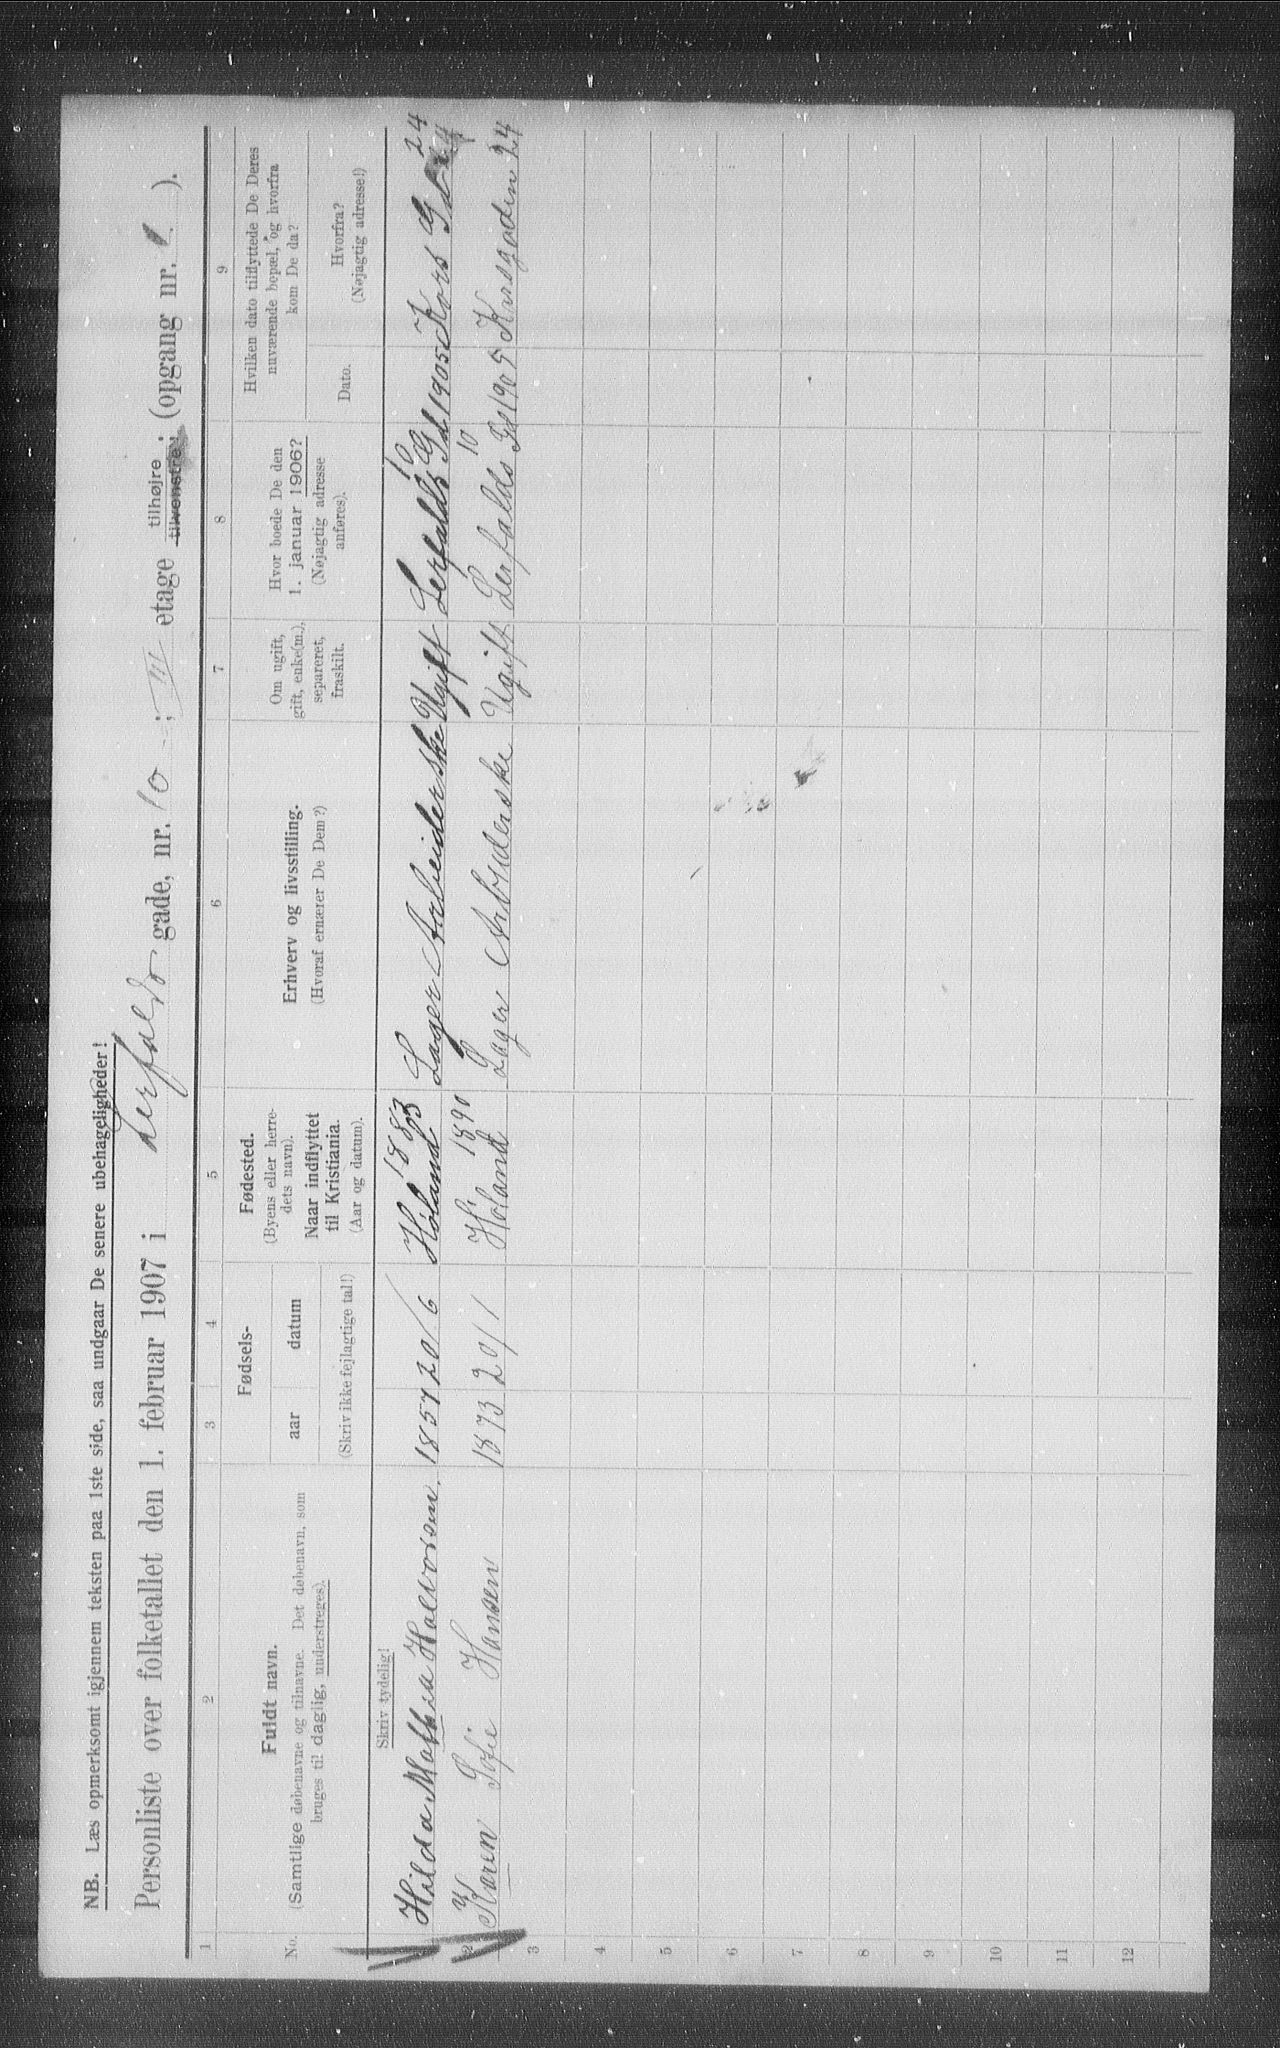 NB. Læs opmerksomt igjennem teksten paa 1ste side, saa undgaar De senere ubehageligheder!
Personliste over folketallet den 1. februar 1907 i Lerfalds gade, nr. 10 ; III etage tilhøjre tilvenstre ; (opgang nr. 1. ).
1 2 3 4 5 6 7 8 9
No.
Fuldt navn.
(Samtlige døbenavne og tilnavne. Det døbenavn, som
bruges til daglig, understreges).
Fødsels-
aar datum
(Skriv ikke fejlagtige tal!)
Fødested.
(Byens eller herre-
dets navn).
Naar indflyttet
til Kristiania.
(Aar og datum).
Erhverv og livsstilling.
(Hvoraf ernærer De Dem?)
Om ugift,
gift, enke(m.),
separeret,
fraskilt.
Hvor boede De den
1. januar 1906?
(Nøjagtig adresse
anføres).
Hvilken dato tilflyttede De Deres
nuværende bopæl, og hvorfra
kom De da?
Dato.
Hvorfra?
(Nøjagtig adresse!)
Skriv tydelig!
1883 10 24
Hilda Mathea Halvorsen. 1857 20/6 Høland Lager Arbeiderske Ugift Lerfalds Gd 1905 Kors Gd 24
1890 10
2 Karen Sofie Hansen 1873 20/1 Høland Lager Arbeiderske Ugift Lerfalds Gd 1905 Korsgaden 24
3
4
5
6
7
8
9
10
11
12